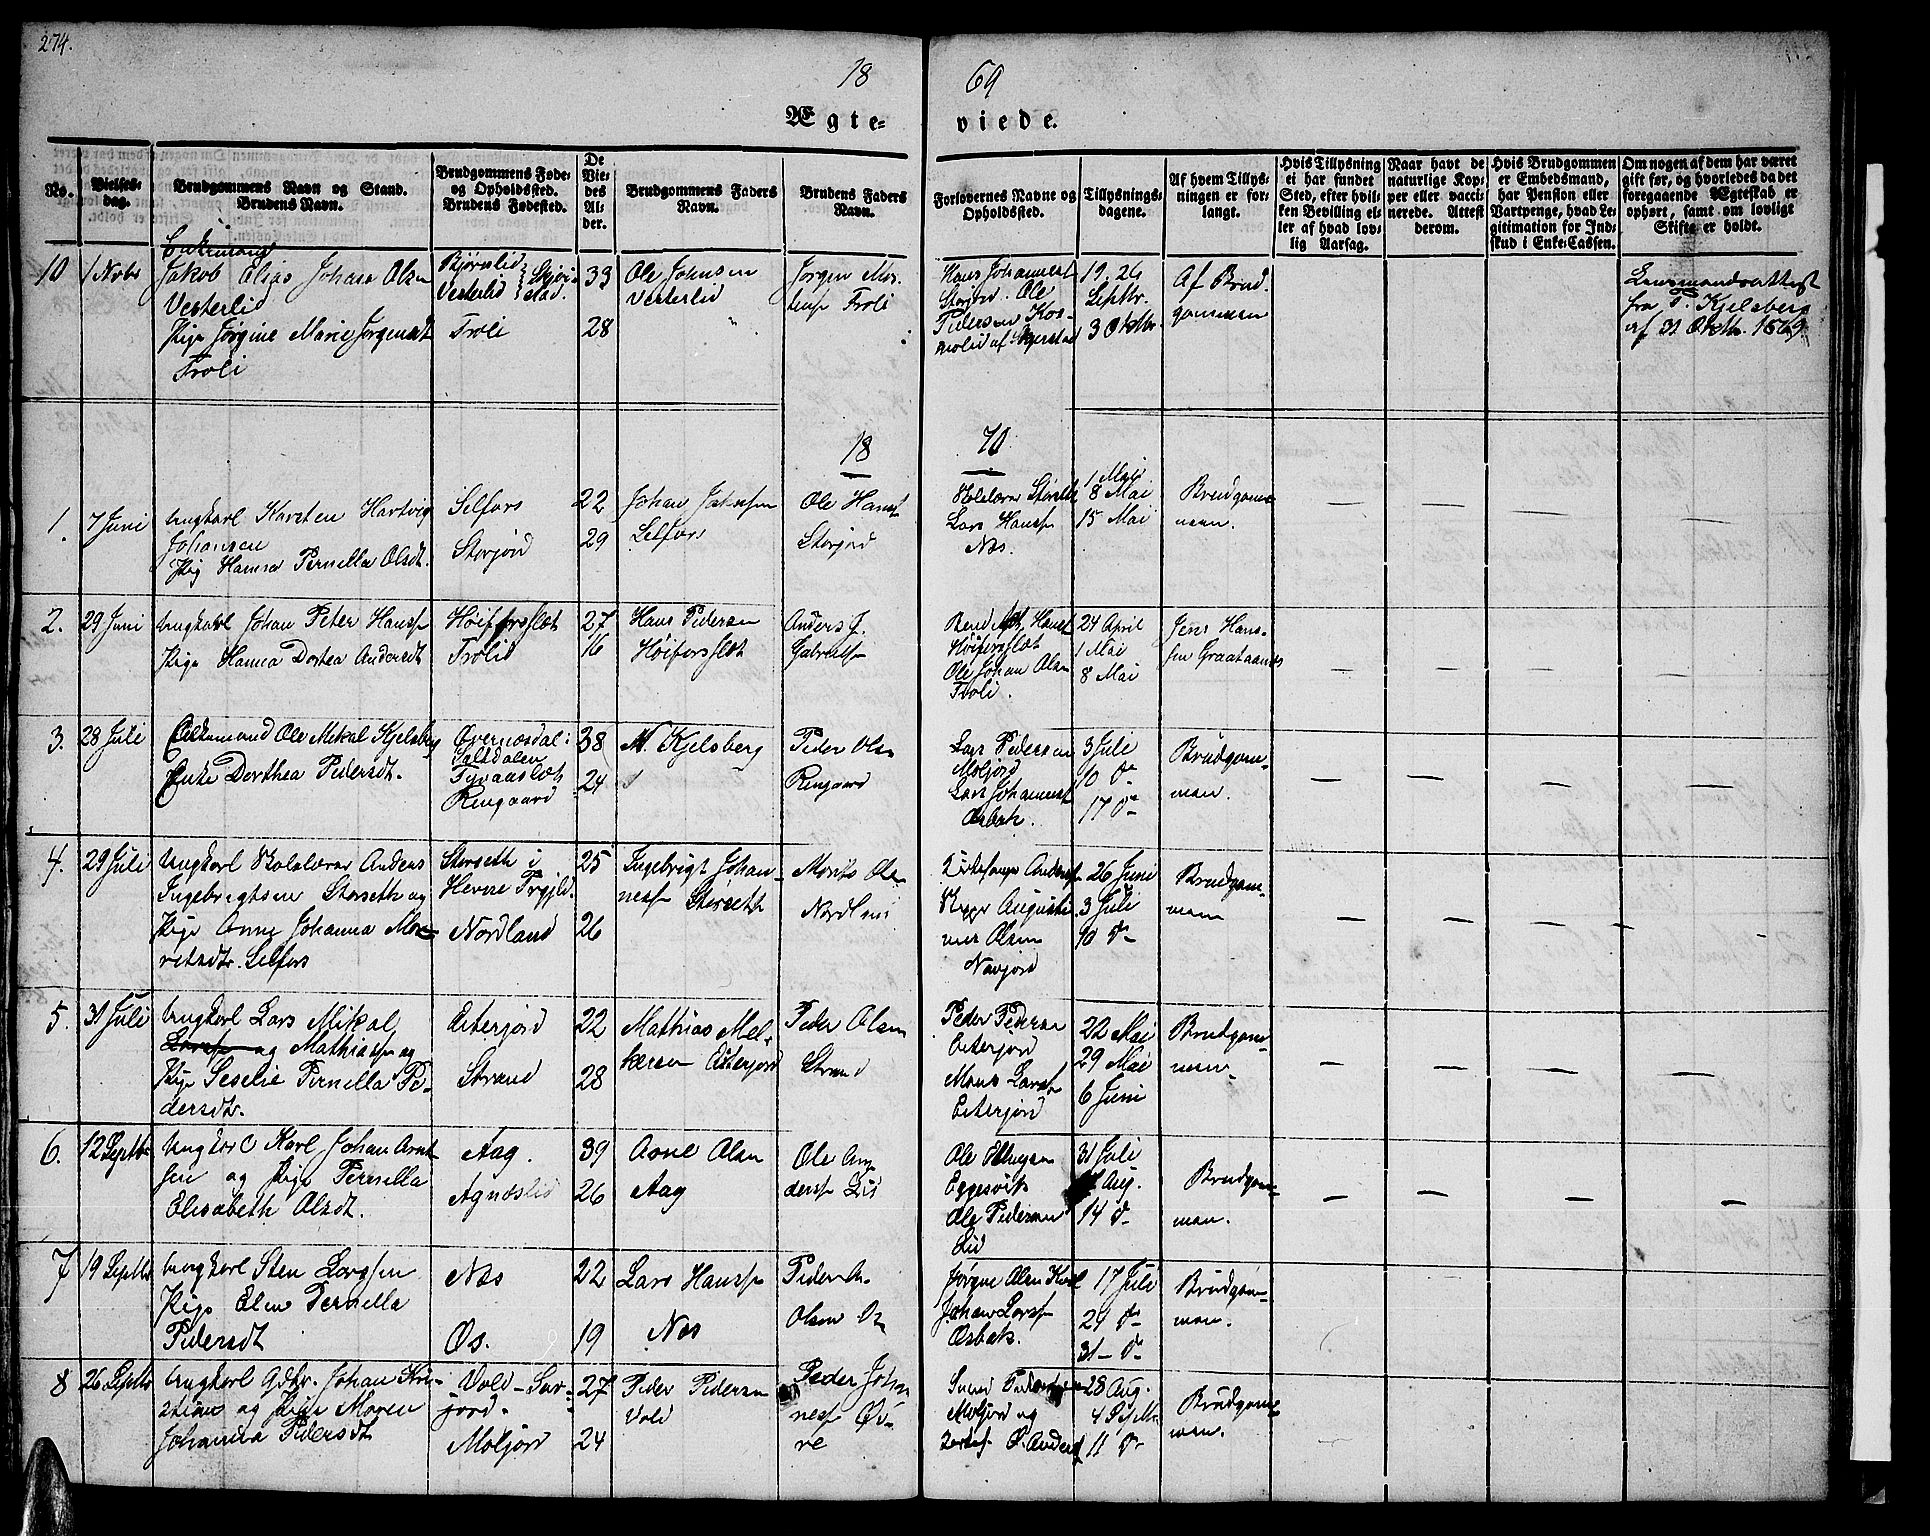 274.
18 69
Ægte- viede.
No.
Vielses-
dag.
Brudgommens Navn og Stand.
Brudens Navn.
Brudgommens Føde-
og Opholdssted.
Brudens Fødested.
De
Vie-
des
Al-
der.
Brudgommens Faders
Navn.
Brudens Faders
Navn.
Forlovernes Navne og
Opholdssted.
Tillysnings-
dagene.
Af hvem Tillys-
ningen er for-
langt.
Hvis Tillysning
ei har fundet
Sted, efter hvil-
ken Bevilling el-
ler af hvad lov-
lig Aarsag.
Naar havt de
naturlige Kop-
per eller vacci-
nerede. Attest
derom.
Hvis Brudgommen
er Embedsmand,
har Pension eller
Vartpenge, hvad Le-
gitimation for Ind-
skud i Enke-Cassen.
Om nogen af dem har været
gift før, og hvorledes da det
foregaaende Ægteskab er
ophørt, samt om lovligt
Skifte er holdt.
10
1 Novbr
Enkemand
Jakob Elias Johan Olsen
Vesterlid
Pige Jørgine Marie Jørgensdt
Troli
Bjørnlid
Vesterlid
Troli
33
28
Ole Johnsen
Vesterlid
Jørgen Mor-
tens Troli
Hans Johannes
Storjord. Ole
Pedersen Kos-
molid af Skjerstad
19. 26
Septbr.
3 Oktbr.
Af Brud-
gommen
Lensmandsattest
fra P. Kjelsberg
af 31 Oktbr. 1869
18 70
1.
7 Juni
Ungkarl Karsten Hartvig
Johansen
Pig Hanna Pernella Olsdt.
Selfors
Storjord
22
29
Johan Jakobsen
Selfors
Ole Hans
Storjord
Skolelærer Storseth
Lars Hans
Næs.
1 Mai
8 Mai
15 Mai
Brudgom-
men.
2.
29 Juni
Ungkarl Johan Peter Hans
Pige Hanna Dortea Andersdt
Høiforsslet
Trolid
27
16
Hans Pedersen
Høiforsslet
Anders J.
Gabriels
Høiforsslet
Ole Johan Olsen
Troli.
24 April
1 Mai
8 Mai
Jens Hans-
sen Graataanes
3.
28 Juli
Enkemand Ole Mikal Kjelsberg
Enke Dorthea Pedersdt.
Evernæsdal i
Saltdalen
Tyvaaslet
Rengaard
38
24
M. Kjelsberg
Peder Olsen
Rengaard
Lars Pedersen
Moljord
Lars Johannes
Osbak.
3 Juli
10 D-
17 D-
Brudgom-
men.
4.
29 Juli
Ungkarl Skolelærer Anders
Ingebrigtsen Storseth og
Pige Anne Johanna Mo-
ritsdtr. Selfors
Storseth i
Hevne Trhjld.
Nordland
25
26
Ingebrigt Johan-
nes Storseth
Morits Olsen
Nordl
Kirkesanger Anders
Augusti
nus Olsen
Navjord
26 Juni
3 Juli
10 D-
Brudgom-
men
5.
31 Juli
Ungkarl Lars Mikal
Lars og Mathias og
Pige Seselie Pernella Pe-
dersdtr.
Esterjord
Strand
22
28
Mathias Mel-
kersen Esterjord
Peder Olsen
Strand
Peder Pedersen
Esterjord
Mons Lars
Esterjord
22 Mai
29 Mai
6 Juni
Brudgom-
men
6.
12 Septbr
Ungkarl Karl Johan Arnt
sen og Pige Pernella
Elisabeth Olsdt.
Aag.
Agnæslid
39
26
Arne Olsen
Aag
Ole An-
ders Lid
Ole
Eggesvik
Ole Pedersen
Lid
31 Juli
Aug.
14 D-
Brudgom-
men.
7
19 Septbr
Ungkarl Sten Larssen
Pige Elen Pernella
Pedersdt
Næs
Øs.
22
19
Lars Hans
Næs
Peder A.
Olsen Øs
Jørgen Olsen
Johan Lars
Osbak.
17 Juli
24 D-
31- D-
Brudgom-
men.
8
26 Septbr
Ungkarl Gdbr. Johan Kri-
stian og Pige Maren
Johanna Pedersdt
Vold - Sor-
jord.
Moljord
27
24
Peder Pedersen
Vold
Peder Johan
nes Øv-
re
Svend Pedersen
Moljord og
28 Aug.
4 Septbr
11 D-
Brudgom-
men.